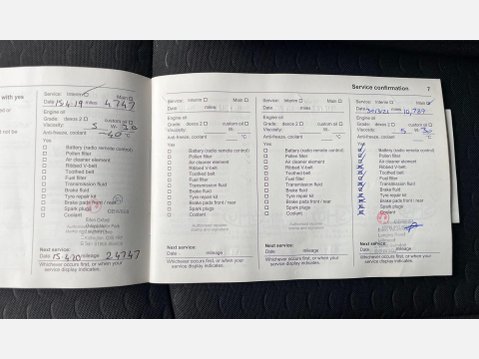 with yes
ed or
not be
Service: Interim Main
Date 15.4.19 miles 4747
Engine oil
Grade: dexos 2 custom oil
Viscosity: 5 W- 30
Anti-freeze, coolant -40 °C
Yes
Battery (radio remote control)
Pollen filter
Air cleaner element
Ribbed V-belt
Toothed belt
Fuel filter
Transmission fluid
Brake fluid
Tyre repair kit
Brake pads front / rear
Spark plugs
Coolant
Next service:
Date 15.4.20 mileage 24747
Whichever occurs first, or when your
service display indicates.
Service: Interim Main
Date miles
Engine oil
Grade: dexos 2 custom oil
Viscosity: W-
Anti-freeze, coolant °C
Yes
Battery (radio remote control)
Pollen filter
Air cleaner element
Ribbed V-belt
Toothed belt
Fuel filter
Transmission fluid
Brake fluid
Tyre repair kit
Brake pads front / rear
Spark plugs
Coolant
Next service:
Date mileage
Whichever occurs first, or when your
service display indicates.
Service confirmation 7
Service: Interim Main
Date miles
Engine oil
Grade: dexos 2 custom oil
Viscosity: W-
Anti-freeze, coolant °C
Yes
Battery (radio remote control)
Pollen filter
Air cleaner element
Ribbed V-belt
Toothed belt
Fuel filter
Transmission fluid
Brake fluid
Tyre repair kit
Brake pads front / rear
Spark plugs
Coolant
Next service:
Date mileage
Whichever occurs first, or when your
service display indicates.
Service: Interim Main
Date miles 10,739
Engine oil
Grade: dexos 2 custom oil
Viscosity: 5 W- 30
Anti-freeze, coolant °C
Yes
Battery (radio remote control)
Pollen filter
Air cleaner element
Ribbed V-belt
Toothed belt
Fuel filter
Transmission fluid
Brake fluid
Tyre repair kit
Brake pads front / rear
Spark plugs
Coolant
Next service:
Date mileage
Whichever occurs first, or when your
service display indicates.